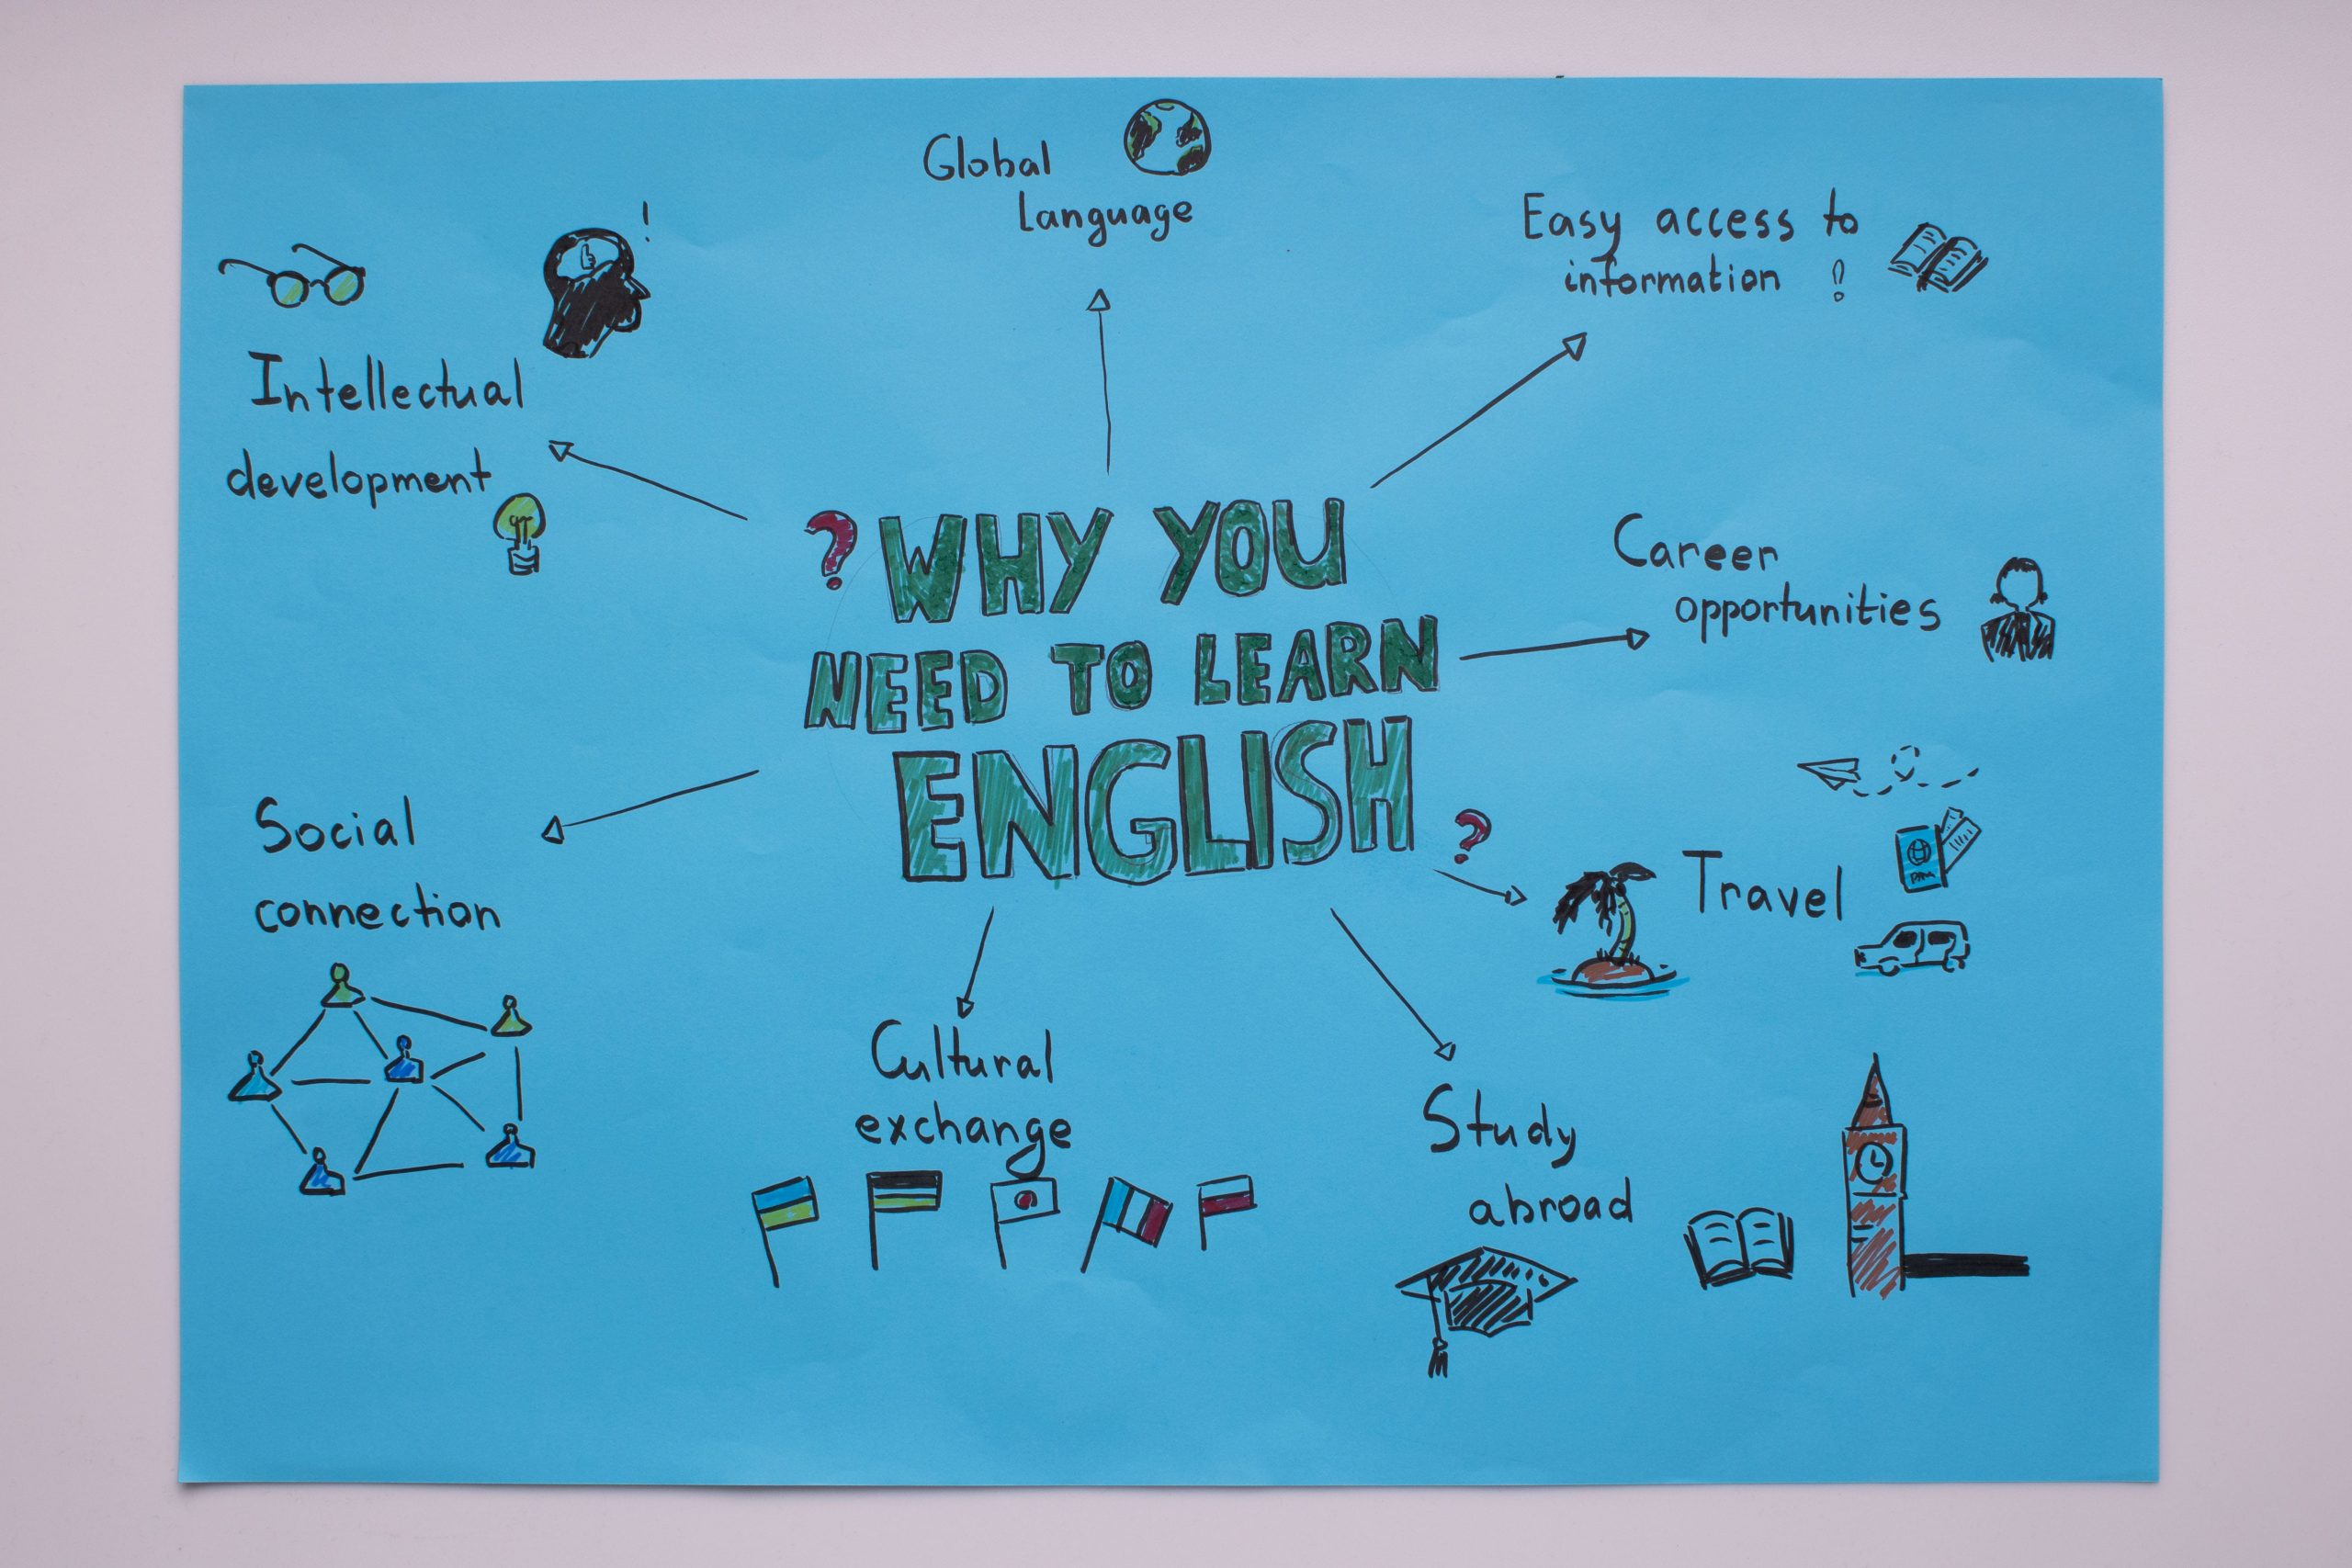 Global
language
Easy access to
information !
!
Intellectual
development
? WHY YOU
NEED TO LEARN
ENGLISH ?
Career
opportunities
Social
connection
Travel
Cultural
exchange
Study
abroad